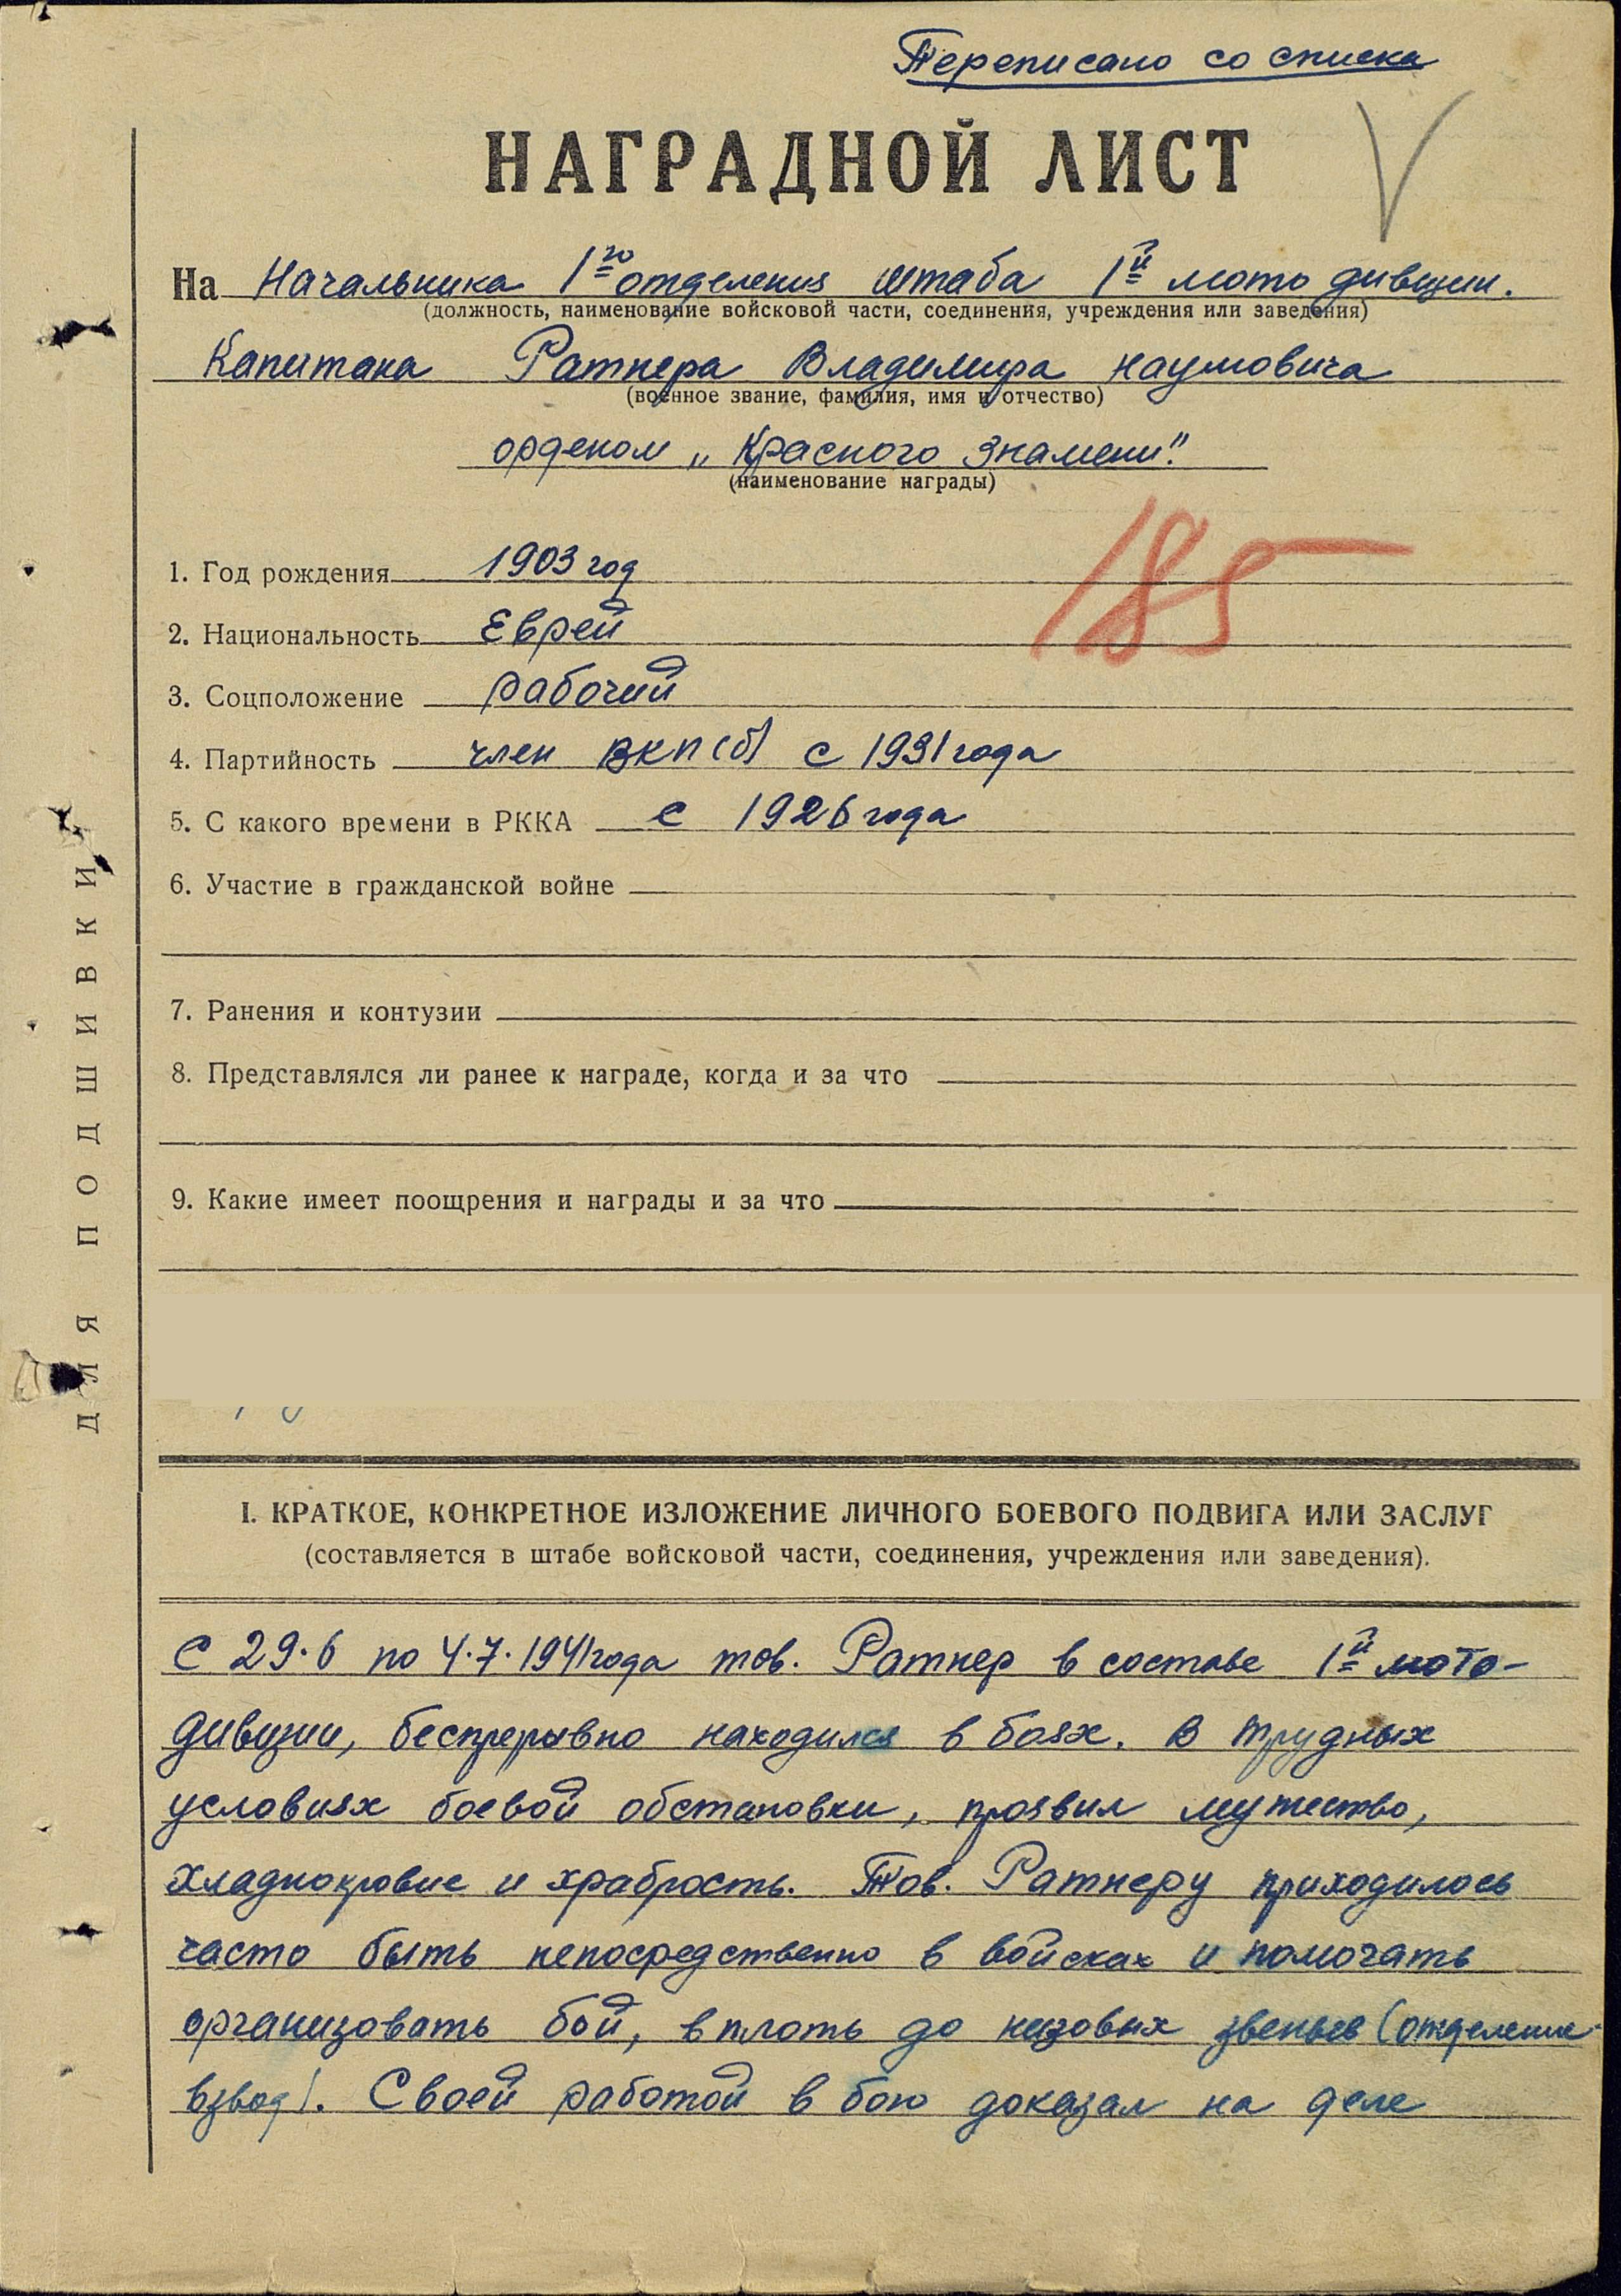 Переписано со списка
НАГРАДНОЙ ЛИСТ
На Начальника 1го отделения штаба 1й мото дивизии.
(должность, наименование войсковой части, соединения, учреждения или заведения)
Капитана Ратнера Владимира Наумовича
(военное звание, фамилия, имя и отчество)
орденом „Красного Знамени"
(наименование награды)
185
1. Год рождения 1903 год
2. Национальность Еврей
3. Соцположение Рабочий
4. Партийность член ВКП(б) с 1931 года
5. С какого времени в РККА с 1926 года
6. Участие в гражданской войне
7. Ранения и контузии
8. Представлялся ли ранее к награде, когда и за что
9. Какие имеет поощрения и награды и за что
ДЛЯ ПОДШИВКИ
I. КРАТКОЕ, КОНКРЕТНОЕ ИЗЛОЖЕНИЕ ЛИЧНОГО БОЕВОГО ПОДВИГА ИЛИ ЗАСЛУГ
(составляется в штабе войсковой части, соединения, учреждения или заведения).
С 29.6 по 4.7.1941 года тов. Ратнер в составе 1й мото-
дивизии, беспрерывно находился в боях. В трудных
условиях боевой обстановки, проявил мужество,
хладнокровие и храбрость. Тов. Ратнеру приходилось
часто быть непосредственно в войсках и помогать
организовать бой, вплоть до низовых звеньев (отделение-
взвод). Своей работой в бою доказал на деле